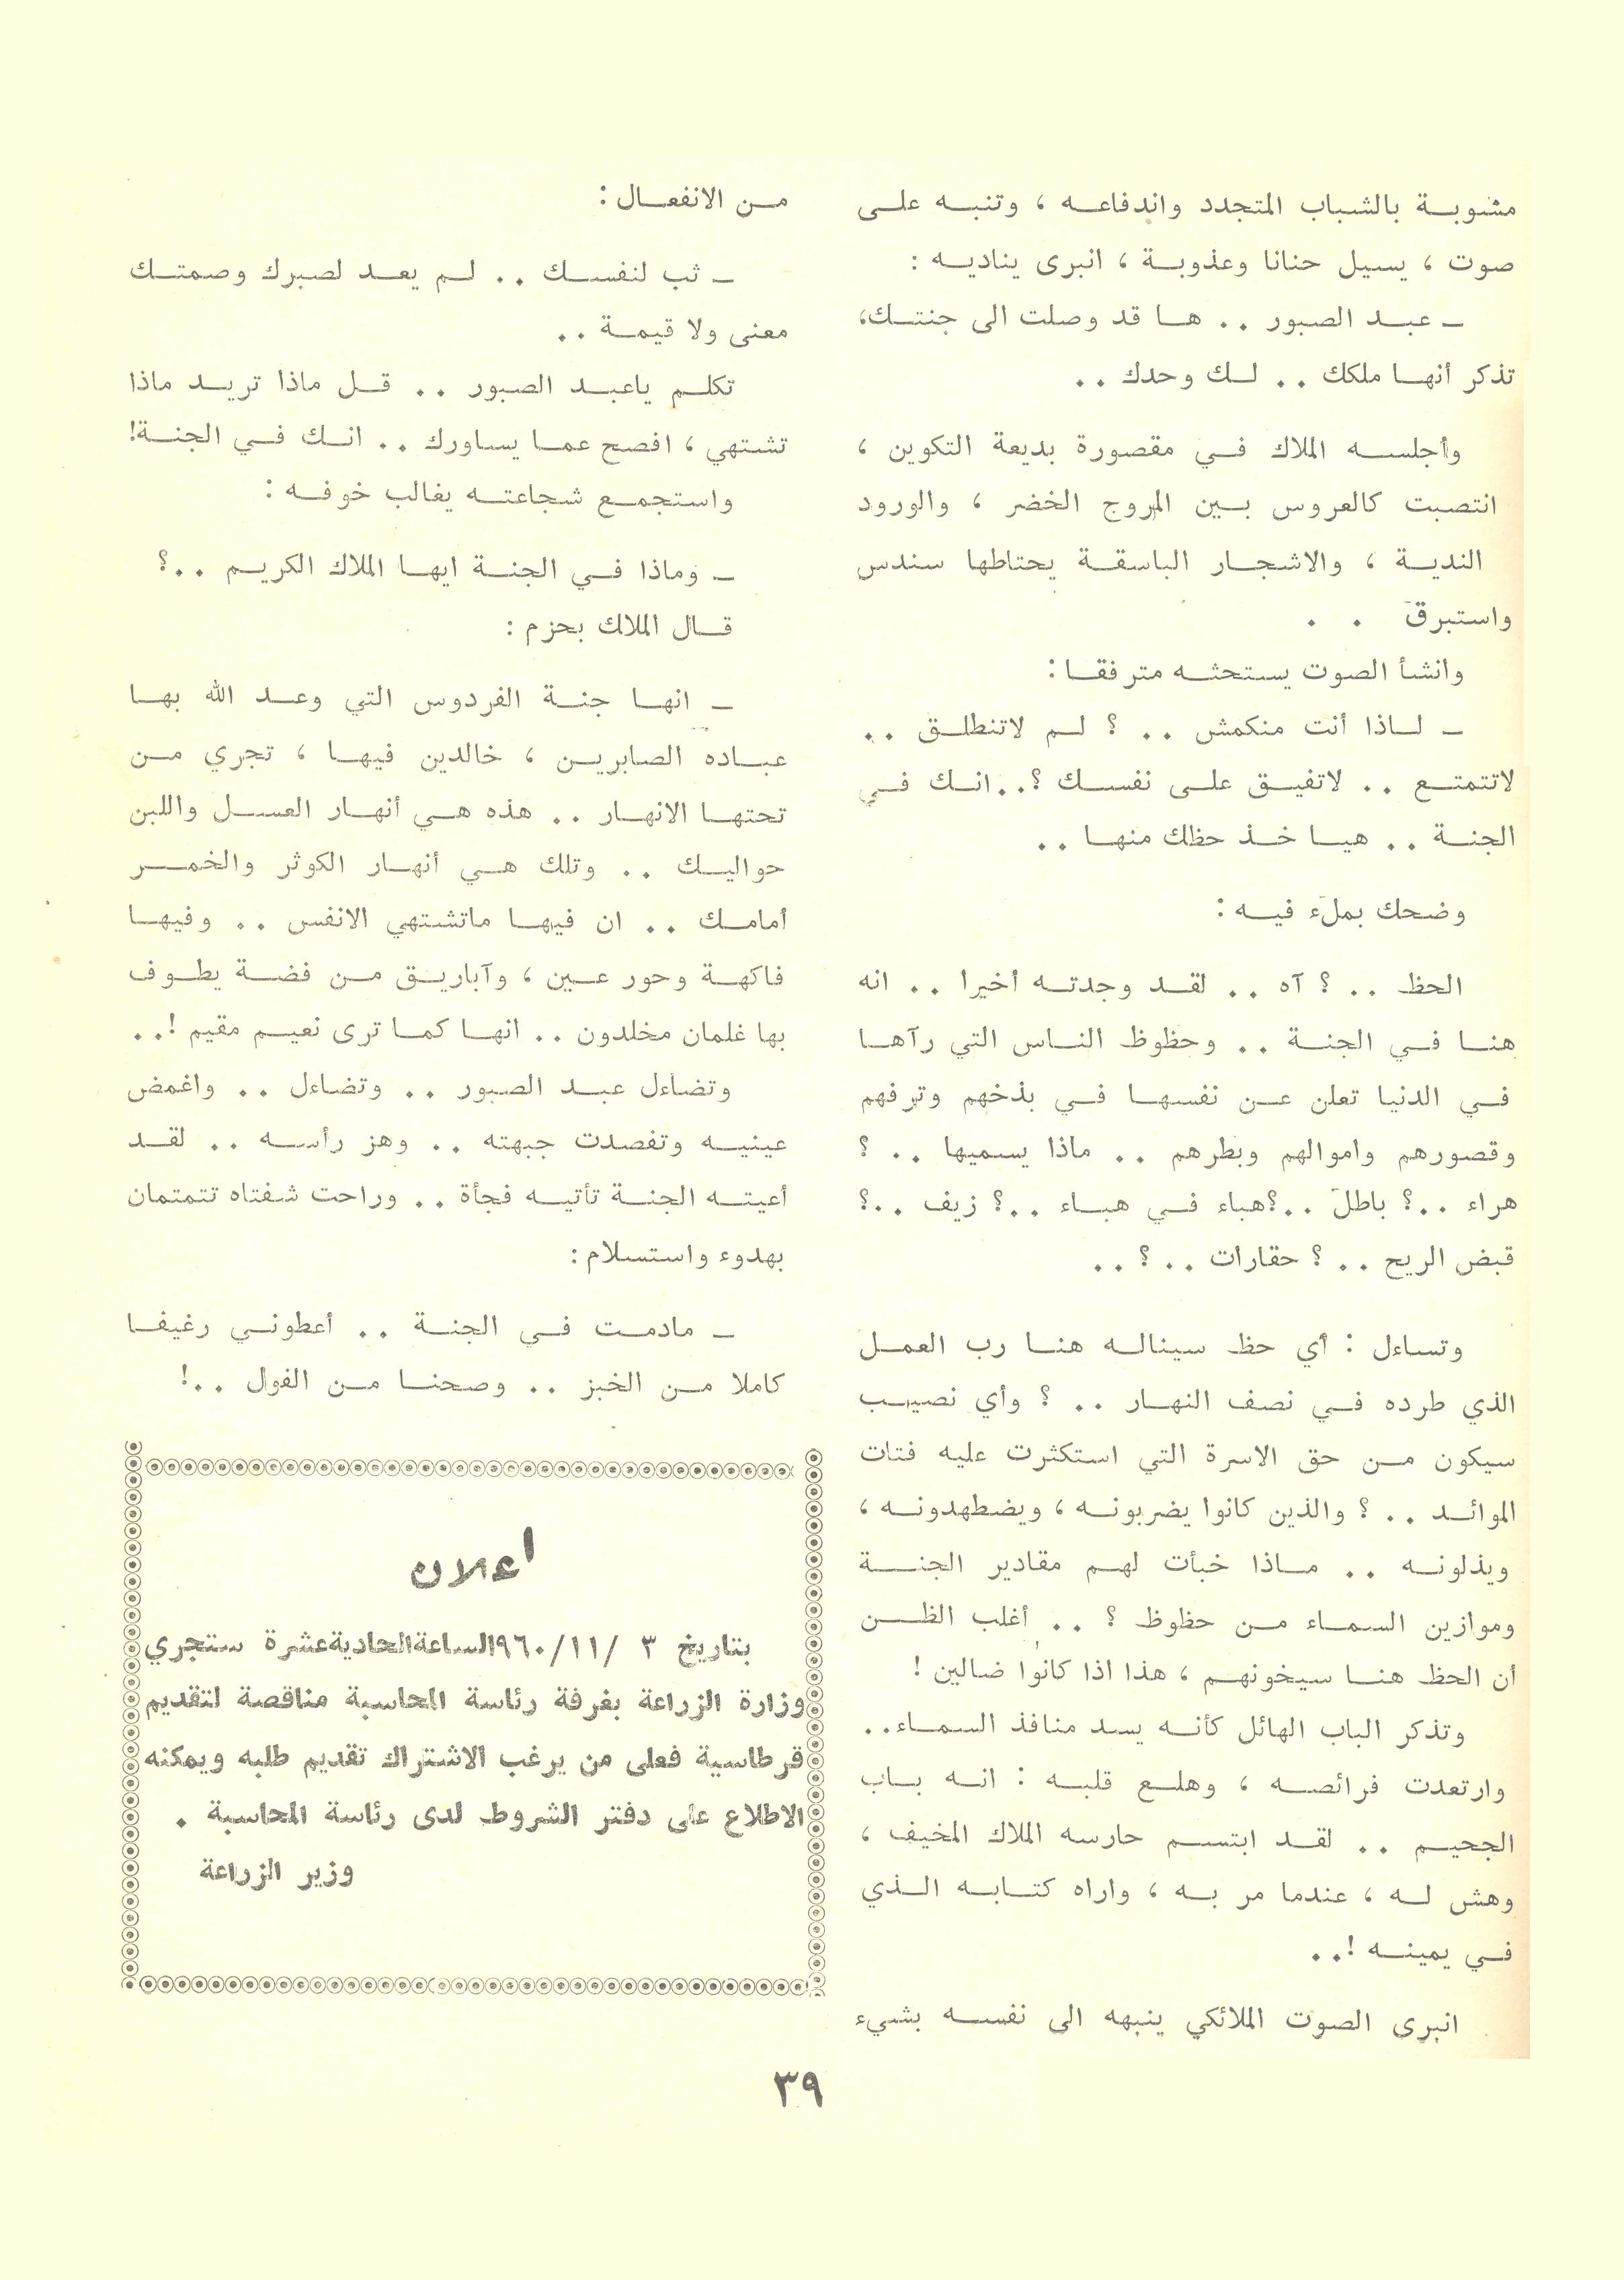 مشوبة بالشباب المتجدد واندفاعه ، وتنبه على
صوت ، يسيل حنانا وعذوبة ، انبرى يناديه :
ـ عبد الصبور . . ها قد وصلت الى جنتك،
تذكر أنها ملكك . . لك وحدك . .
وأجلسه الملاك في مقصورة بديعة التكوين ،
انتصبت كالعروس بين المروج الخضر ، والورود
الندية ، والاشجار الباسقة يحتاطها سندس
واستبرق . .
وانشأ الصوت يستحثه مترفقا :
ـ لماذا أنت منكمش . . ؟ لم لاتنطلق . .
لاتتمتع . . لاتفيق على نفسك ؟. .انك في
الجنة . . هيا خذ حظك منها . .
وضحك بملء فيه :
الحظ . . ؟ آه . . لقد وجدته أخيرا . . انه
هنا في الجنة . . وحظوظ الناس التي رآها
في الدنيا تعلن عن نفسها في بذخهم وترفهم
وقصورهم واموالهم وبطرهم . . ماذا يسميها . . ؟
هراء . .؟ باطل . .؟هباء في هباء . .؟ زيف . .؟
قبض الريح . . ؟ حقارات . . ؟ . .
وتساءل : أي حظ سيناله هنا رب العمل
الذي طرده في نصف النهار . . ؟ وأي نصيب
سيكون من حق الاسرة التي استكثرت عليه فتات
الموائد . . ؟ والذين كانوا يضربونه ، ويضطهدونه ،
ويذلونه . . ماذا خبأت لهم مقادير الجنة
وموازين السماء من حظوظ ؟ . . أغلب الظن
أن الحظ هنا سيخونهم ، هذا اذا كانوا ضالين !
وتذكر الباب الهائل كأنه يسد منافذ السماء. .
وارتعدت فرائصه ، وهلع قلبه : انه باب
الجحيم . . لقد ابتسم حارسه الملاك المخيف ،
وهش له ، عندما مر به ، واراه كتابه الذي
في يمينه !. .
انبرى الصوت الملائكي ينبهه الى نفسه بشيء
من الانفعال :
ـ ثب لنفسك . . لم يعد لصبرك وصمتك
معنى ولا قيمة . .
تكلم ياعبد الصبور . . قل ماذا تريد ماذا
تشتهي ، افصح عما يساورك . . انك في الجنة!
واستجمع شجاعته يغالب خوفه :
ـ وماذا في الجنة ايها الملاك الكريم . .؟
قال الملاك بحزم :
ـ انها جنة الفردوس التي وعد الله بها
عباده الصابرين ، خالدين فيها ، تجري من
تحتها الانهار . . هذه هي أنهار العسل واللبن
حواليك . . وتلك هي أنهار الكوثر والخمر
أمامك . . ان فيها ماتشتهي الانفس . . وفيها
فاكهة وحور عين ، وآباريق من فضة يطوف
بها غلمان مخلدون . . انها كما ترى نعيم مقيم !. .
وتضاءل عبد الصبور . . وتضاءل . . واغمض
عينيه وتفصدت جبهته . . وهز رأسه . . لقد
أعيته الجنة تأتيه فجأة . . وراحت شفتاه تتمتمان
بهدوء واستسلام :
ـ مادمت في الجنة . . أعطوني رغيفا
كاملا من الخبز . . وصحنا من الفول . .!
اعلان
بتاريخ ٣ /١١/٩٦٠الساعةالحاديةعشرة ستجري
وزارة الزراعة بغرفة رئاسة المحاسبة مناقصة لتقديم
قرطاسية فعلى من يرغب الاشتراك تقديم طلبه ويمكنه
الاطلاع على دفتر الشروط لدى رئاسة المحاسبة .
وزير الزراعة
٣٩